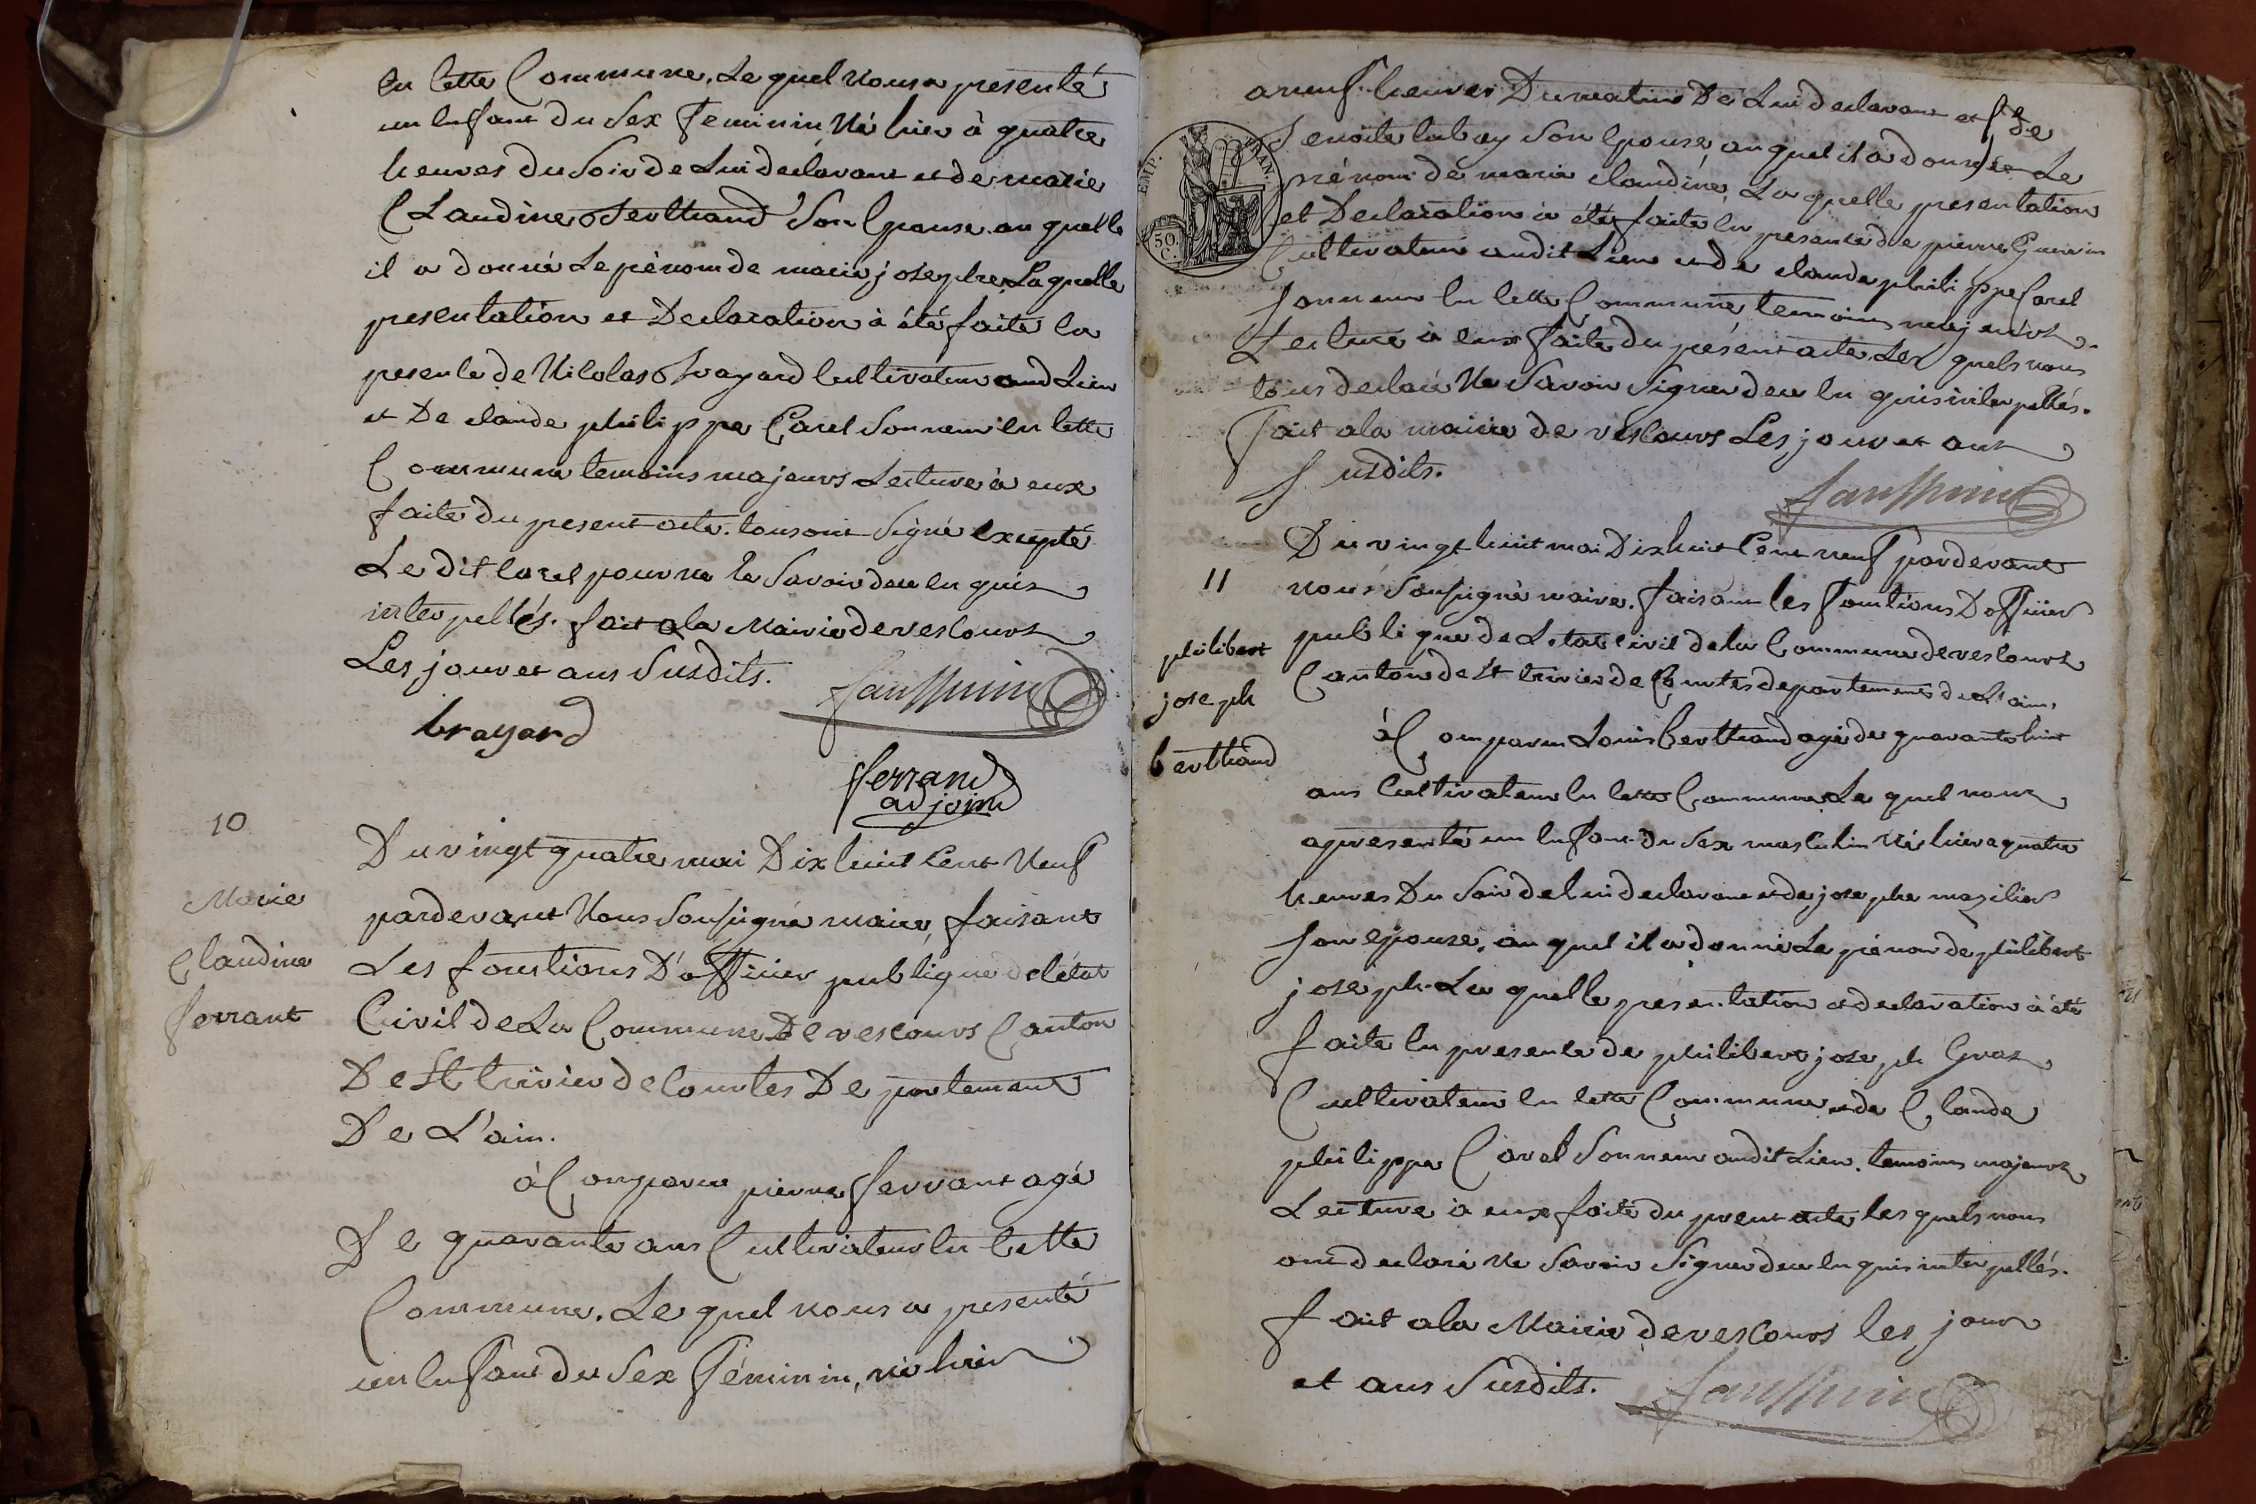 en cette Commune. Le quel nous a presenté
un Enfant du Sex Feminin Né hier à quatre
heures du Soir de Lui declarant et de marie
Claudine Berthaud Son Epouse. au quelle
il a donné Le prénom de marie josephe Laquelle
presentation et Declaration à été faite en
presence de Nicolas Brayard Cultivateur aud Lieu
et De claude philippe Carel Sonneur en cette
Commune temoins majeurs Lecture à eux
faite du present acte. tous ont Signé excepté
Le dit Carel pour ne le Savoir de ce enquis
interpellés. fait a la Mairie de vescours
Les jour et ans Susdits.
brayard
ferrand
adjoint
10
Marie
Claudine
ferrant
Du vingt quatre mai Dix huit Cent Neuf
pardevant Nous Sousigné maire, faisant
Les fonctions D'officier publique de l'état
Civil de La Commune De vescours Canton
De St trivier de Courtes Departement
De L'ain.
à Comparu pierre ferrant agé
De quarante ans Cultivateur en Cette
Commune. Le quel nous a presenté
un Enfant du Sex féminin, né hier
EMP. FRAN.
50.
C.
a neuf heures Du matin De Lui declarant et de
Benoite Son Epouse, au quel il a donnée Le
prénom de marie claudine, La quelle presentation
et Declaration à été faite en presence de pierre Guerin
Cultivateur audit Lieu et de claude philippe Carel
Sonneur en cette Commune temoins majeurs.
Lecture à eux faite du présent acte. Les quels nous
tous declaré Ne Savoir Signer de ce enquis interpellés.
Fait a la mairie de vescours Les jour et ans
Susdits.
11
philibert
joseph
berthaud
Du vingt huit mai Dix huit Cent neuf pardevant
nous Sousigné maire. faisant les fonctions D'officier
publique de L'etat Civil de la Commune de vescours
Canton de St trivier de Courtes departement de L'ain.
à Comparu Louis berthaud agé de quarante huit
ans Cultivateur en cette Commune Le quel nous
a presenté un Enfant du Sex masculin Né hier a quatre
heures Du Soir de lui declarant et de josephe mazilier
Son epouse, au quel il a donné Le prénom de philibert
joseph. La quelle presentation et declaration à été
faite en presence de philibert joseph Gras
Cultivateur en cette Commune et de Claude
philippe Carel Sonneur audit Lieu. temoins majeurs
Lecture à eux faite du prent acte les quels nous
ont declaré Ne Savoir Signer de ce enquis interpellés.
fait a la Mairie de vescours les jour
et ans Susdits.